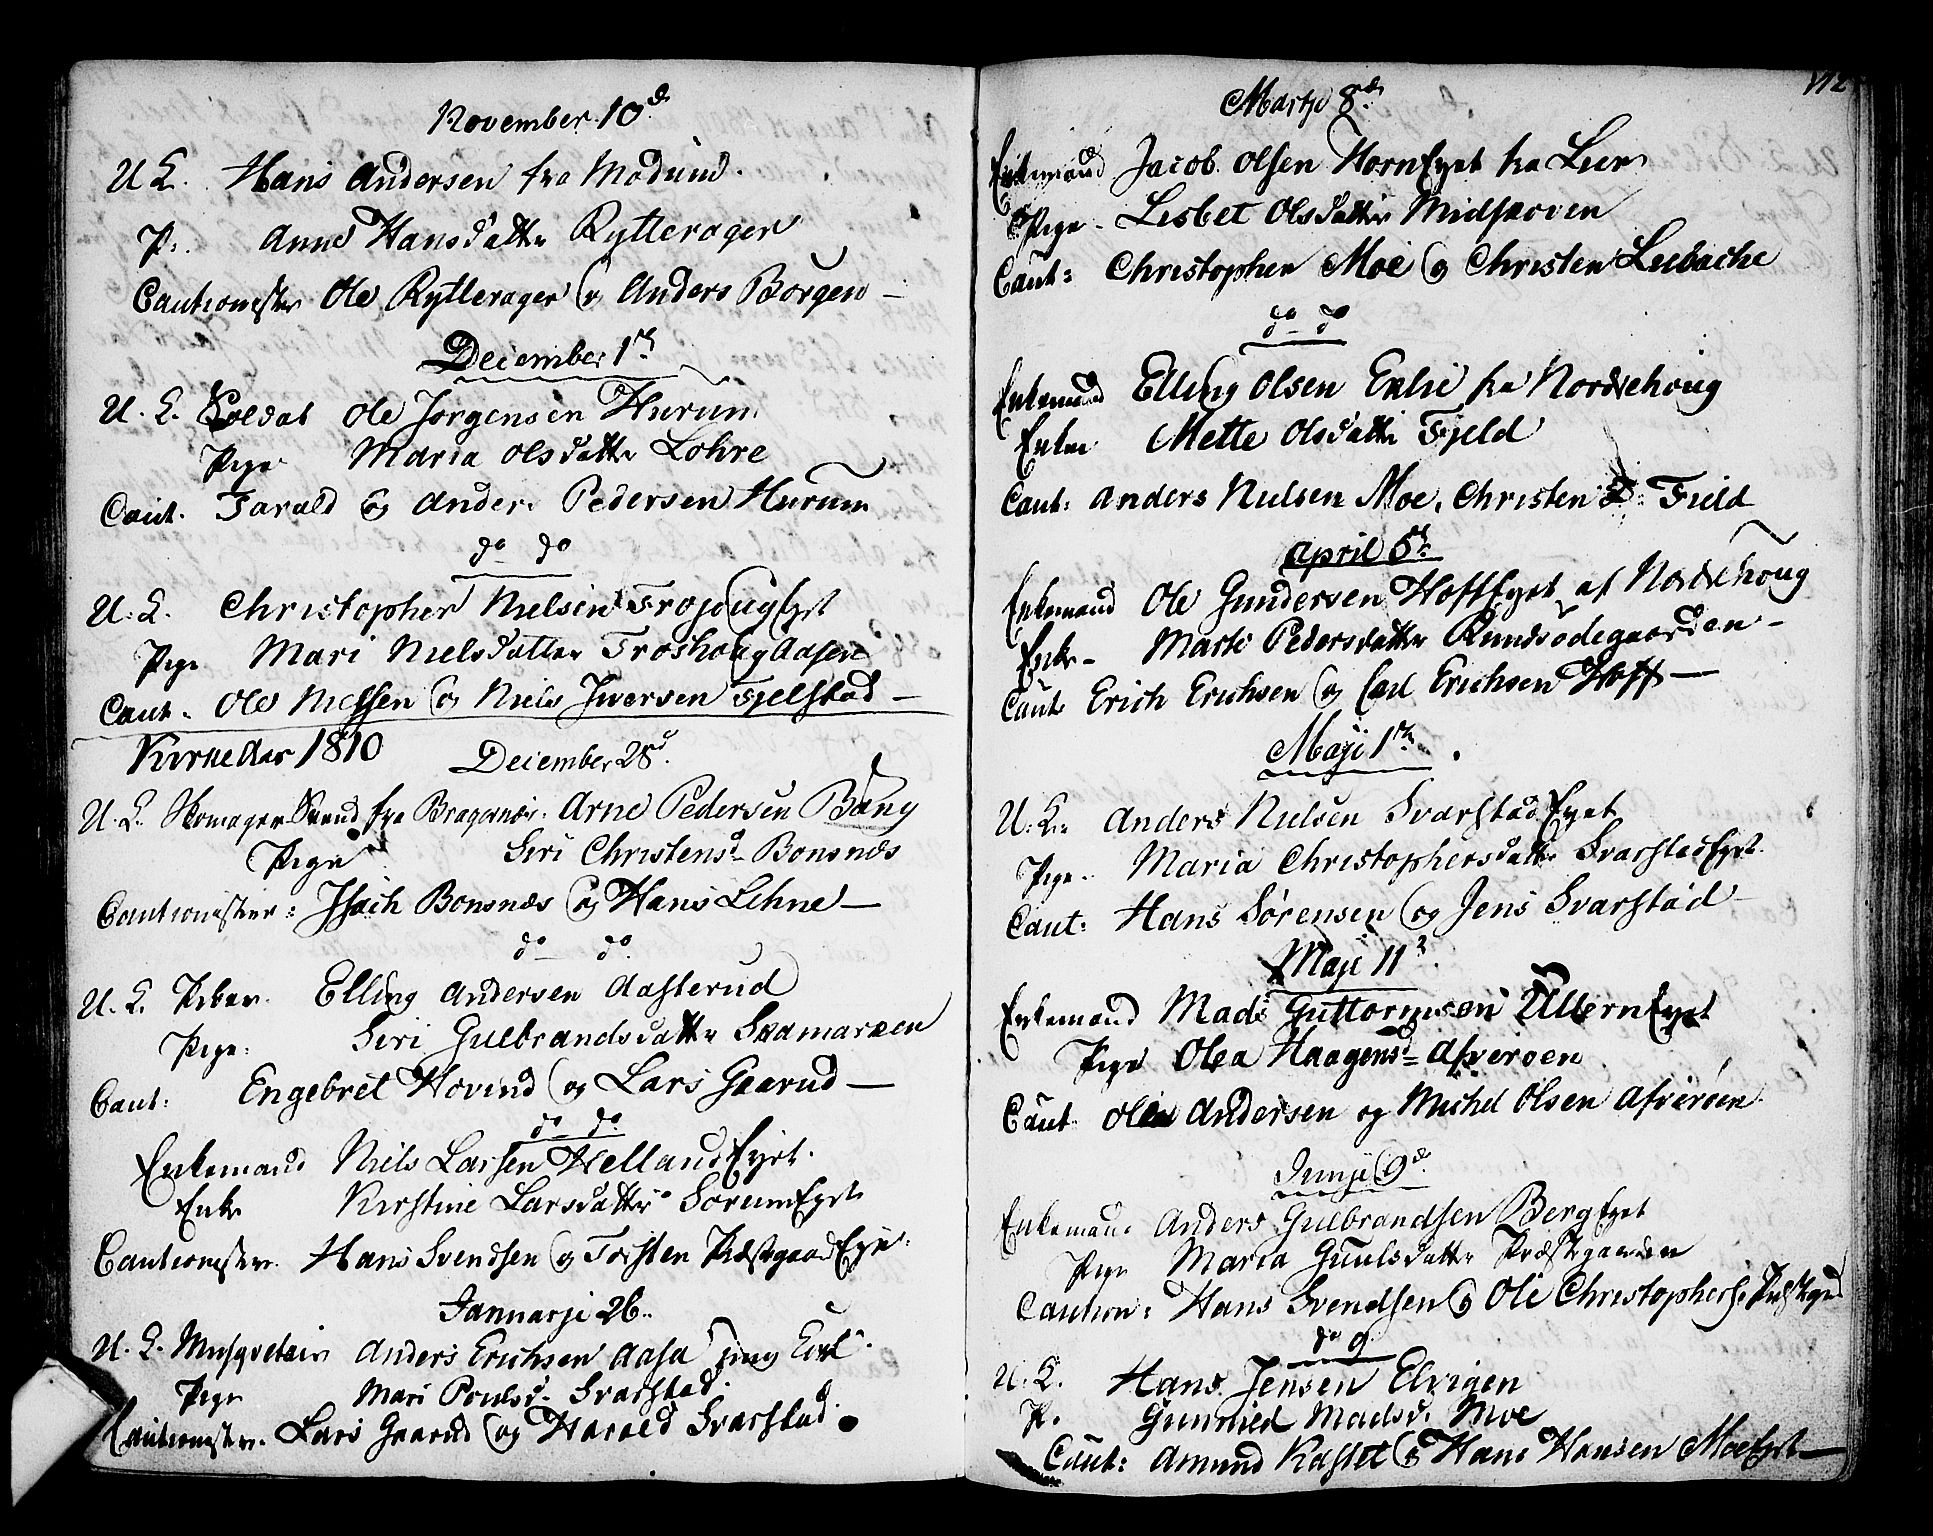 November 10d
U. K. Hans Andersen fra Modum.
P. Anne Hansdatter Rytterager
Cautionister Ole Rytterager og Anders Borgen —
December 1ste
U. K. Soldat Ole Jorgensen Hurum
Pige Maria Olsdatter Lohre
Caut. Harald og Anders Pedersen Hurum
do do
U. K. Christopher Nielsen Eyet
Pige Mari Nielsdatter Froshoug Aasen
Caut. Ole Nielsen og Niels Iversen Fjelstad —
Kirke Aar 1810 December 28d.
U. K. Skomager Svend fra Bragernæs. Arne Pedersen Bang
Pige Siri Christensd= Bonsnæs
Cautionister: Isach Bonsnæs og Hans Lehne —
do do
U. K. Elling Andersen Aasterud
Pige: Siri Gulbrandsdatter Svamarken
Caut: Engebret Hovind og Lars Gaarud —
do do
Enkemand Niels Larsen Helland Eyet.
Enke Kirstine Larsdatter Sorum Eyet
Cautionister. Hans Svendsen og Torsten Præstgaard Eye.
Januarji 26.
U. K. Musqveteir Anders Erichsen Aasa
Pige Mari Poulsd. Svarstad.
Cautionister. Lars Gaarud og Harald Svarstad.
112
Martji 8de
Enkemand Jacob Olsen Horn Eyet fra Lier
Pige. Lisbet Olsdatter Midskoven
Caut: Christopher Moe og Christen Leebache
do do
Enkemand Elling Olsen fra Norderhoug
Enke Mette Olsdatter Fjeld
Caut: Anders Nielsen Moe, Christen Field
April 5te
Enkemand Ole Gundersen Hoff Eyet af Norderhoug
Enke Marte Pedersdatter Rundsødegaarden —
Caut. Erich Erichsen og Carl Erichsen Hoff —
Maji 1ste
U. K. Anders Nielsen Svarstad Eyet
Pige Maria Christophersdatter Svarstad Eyet.
Caut: Hans Sørensen og Jens Svarstad —
Maji 11
Enkemand Mads Guttormsen Ullern Eyet
Pige Olea Haagensd= Asveroen
Caut. Ole Andersen og Michel Olsen Asveröen.
Junji 9d.
Enkeman. Anders Gulbrandsen Berg Eyet
Pige Maria Guulsdatter Præstgaarden
Caution: Hans Svendsen og Ole Christophers. Præstegrd
do 9
U. K. Hans Jensen Elvigen
P. Gunnild Madsd. Moe
Caut: Amund Rastet og Hans Hansen Moe Eyet —